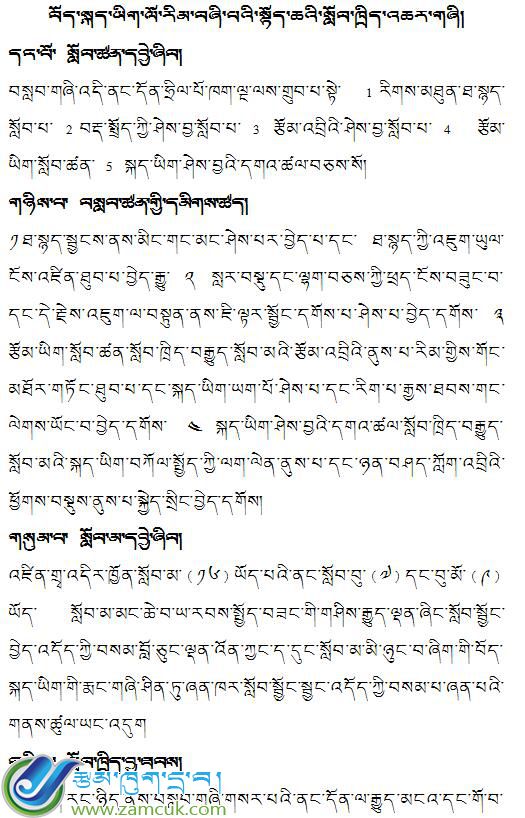 བོད་སྐད་ཡིག་ལོ་རིམ་བཞི་བའི་སྟོད་ཆའི་སློབ་ཁྲིད་འཆར་གཞི།
དང་པོ། སློབ་ཚན་དབྱེ་ཞིབ།
བསླབ་གཞི་འདི་ནང་དོན་ཧྲིལ་པོ་ཁག་ལྔ་ལས་གྲུབ་པ་སྟེ་ 1 རིགས་མཐུན་ཐ་སྙད་
སློབ་པ་ 2 བརྡ་སྤྲོད་ཀྱི་ཤེས་བྱ་སློབ་པ་ 3 རྩོམ་འབྲིའི་ཤེས་བྱ་སློབ་པ་ 4 རྩོམ་
ཡིག་སློབ་ཚན་ 5 སྐད་ཡིག་ཤེས་བྱའི་དགའ་ཚལ་བཅས་སོ།
གཉིས་པ། བསླབ་ཚན་གྱི་དམིགས་ཚད།
༡ཐ་སྙད་སྦྱངས་ནས་མིང་གང་མང་ཤེས་པར་བྱེད་པ་དང་ ཐ་སྙད་ཀྱི་འཇུག་ཡུལ་
ངོས་འཛིན་ཐུབ་པ་བྱེད་རྒྱུ ༢ སླར་བསྡུ་དང་ལྷག་བཅས་ཀྱི་ཕྲད་ངོས་བཟུང་བ་
དང་དེ་རྗེས་འཇུག་ལ་བསྟུན་ནས་ཇི་ལྟར་སྦྱོང་དགོས་པ་ཤེས་པ་བྱེད་དགོས་ ༣
རྩོམ་ཡིག་སློབ་ཚན་སློབ་ཁྲིད་བརྒྱུད་སློབ་མའི་རྩོམ་འབྲིའི་ནུས་པ་རིམ་གྱིས་གོང་
མཐོར་གཏོང་ཐུབ་པ་དང་སྐད་ཡིག་ཡག་པོ་ཤེས་པ་དང་རིག་པ་རྒྱས་ཐབས་གང་
ལེགས་ཡོང་བ་བྱེད་དགོས་ ༤ སྐད་ཡིག་ཤེས་བྱའི་དགའ་ཚལ་སློབ་ཁྲིད་བརྒྱུད་
སློབ་མའི་སྐད་ཡིག་བཀོལ་སྤྱོད་ཀྱི་ལག་ལེན་ནུས་པ་དང་ཉན་བཤད་ཀློག་འབྲིའི་
ཕྱོགས་བསྡུས་ནུས་པ་སྐྱེད་སྲིང་བྱེད་དགོས།
གསུམ་པ། སློབ་མ་དབྱེ་ཞིབ།
འཛིན་གྲྭ་འདིར་ཁྱོན་སློབ་མ་(༡༦)ཡོད་པའི་ནང་སློབ་བུ་(༧)དང་བུ་མོ་(༩)
ཡོད་ སློབ་མ་མང་ཆེ་བ་ཡ་རབས་སྤྱོད་བཟང་གི་གཤིས་རྒྱུད་ལྡན་ཞིང་སློབ་སྦྱོང་
བྱེད་འདོད་ཀྱི་བསམ་བློ་ཅུང་ལྡན་འོན་ཀྱང་ད་དུང་སློབ་མ་མི་ཉུང་བ་ཞིག་གི་བོད་
སྐད་ཡིག་གི་རྨང་གཞི་ཤིན་ཏུ་ཞན་ཁར་སློབ་སྦྱོང་སྦྱང་འདོད་ཀྱི་བསམ་པ་ཞན་པའི་
གནས་ཚུལ་ཡང་འདུག
སློབ་ཁྲིད་བྱ་ཐབས།
རང་ཉིད་ནས་བསླབ་གཞི་གསར་པའི་ནང་དོན་ལ་རྒྱུད་མངའ་དང་གོ་བ་
རྩོམ་ཁུག་དྲ་བ།
www.zamcuk.com